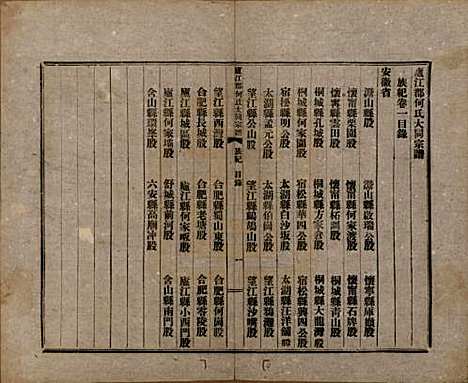 廬江郡何氏大同宗譜
族紀卷一目錄
安徽省
潛山縣股 潛山縣啟瑞公股
懷甯縣栗園股 懷甯縣何家灣股 懷甯縣麻嶺股
懷甯縣雲田股 懷甯縣柘園股 懷甯縣石牌股
桐城縣孔城股 桐城縣方家畬股 桐城縣青山股
桐城縣何家園股 桐城縣 桐城縣大龍灣股
宿松縣明公股 宿松縣華四公股 宿松縣興四公股
太湖縣孟元公股 太湖縣白沙坂股 太湖縣江洋舖股
太湖縣伯圖公股
望江縣公山股 望江縣鷓鴣山股 望江縣鴉灘股
望江縣沙嘴股
廬江郡何氏大同宗譜 族紀 目錄 一
望江縣西灣股
合肥縣長城股 合肥縣蜀山東股 合肥縣何園股
廬江縣城區股 合肥縣老塘股 合肥縣零陵股
廬江縣何家壩股 廬江縣何家畈股 廬江縣小西門股
含山縣瑞峯股 舒城縣前河股
六安縣高廟沖股 含山縣南門股